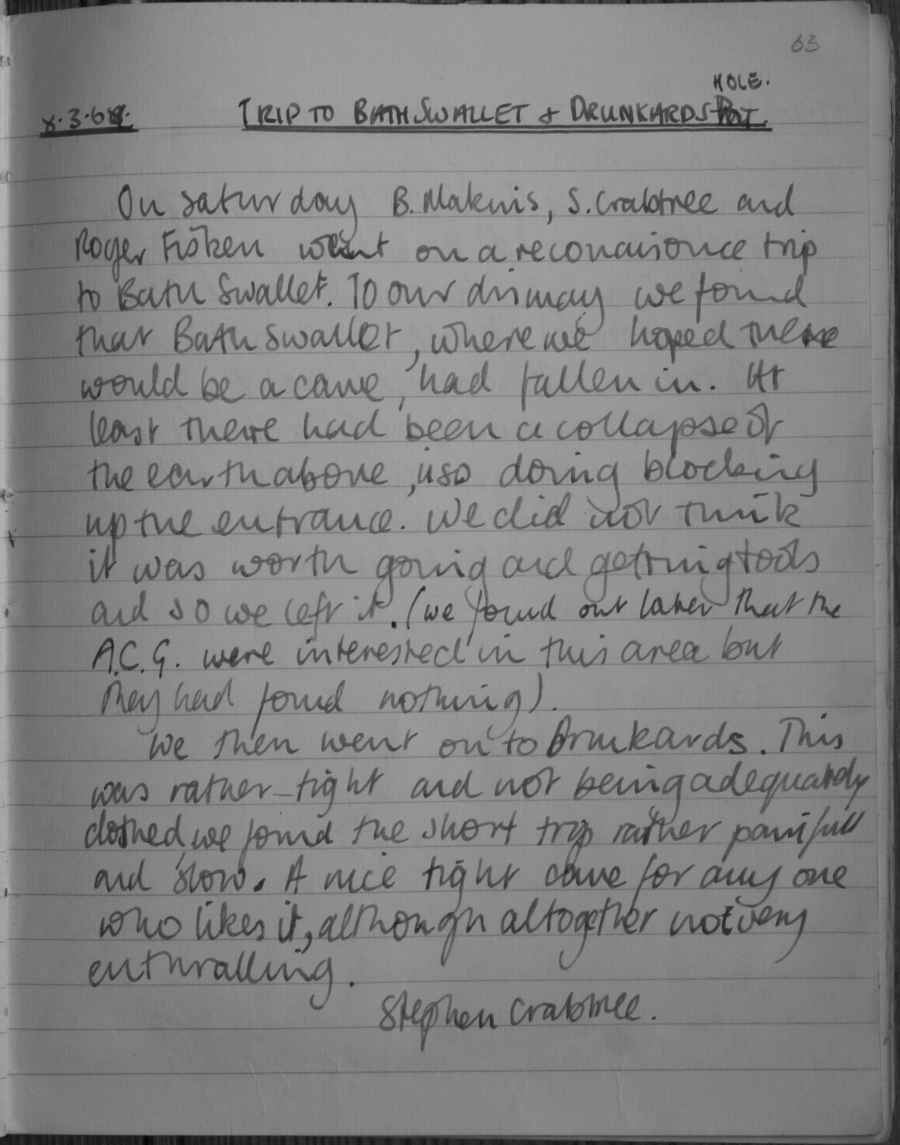 63
HOLE.
TRIP TO BATH SWALLET & DRUNKARDS POT.
On saturday B. Makinis, S. Crabtree and
Roger Fisken went on a reconaisonce trip
to Bath Swallet. To our dismay we found
that Bath Swallet, where we hoped there
would be a cave, had fallen in. At
least there had been a collapse of
the earth above, so doing blocking
up the entrance. We did not think
it was worth going and getting tools
and so we left it. (we found out later that the
A.C.G. were interested in this area but
they had found nothing).
We then went on to Drunkards. This
was rather tight and not being adequately
clothed we found the short trip rather painfull
and slow. A nice tight cave for any one
who likes it, although altogether not very
enthralling.
Stephen Crabtree.